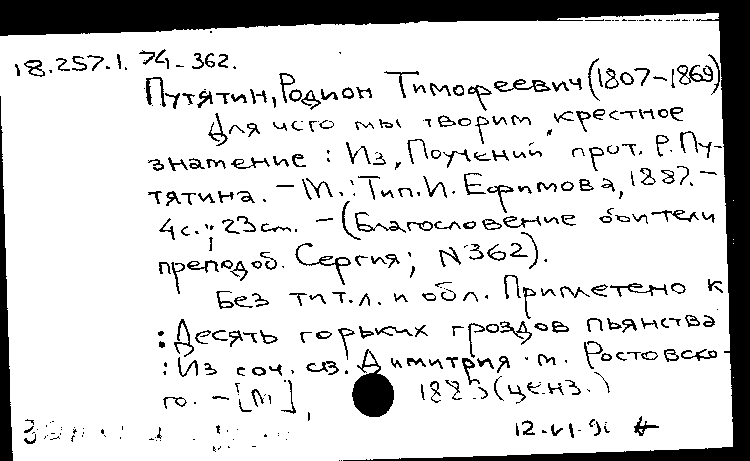 18.257.1. 74-362.
Путятин, Родион Тимофеевич (1807-1869)
Для чего мы творим крестное
знамение : Из „Поучений" прот. Р. Пу-
тятина. - М. : Тип. И. Ефимова, 1887. -
4 с. ; 23 см. - (Благословение обители
преподоб. Сергия ; N 362).
Без тит. л. и обл. Приплетено к
: Десять горьких гроздов пьянства
: Из соч. св. Димитрия м. Ростовско-
го. - [М], 1883 (ценз.)
12.VI.91